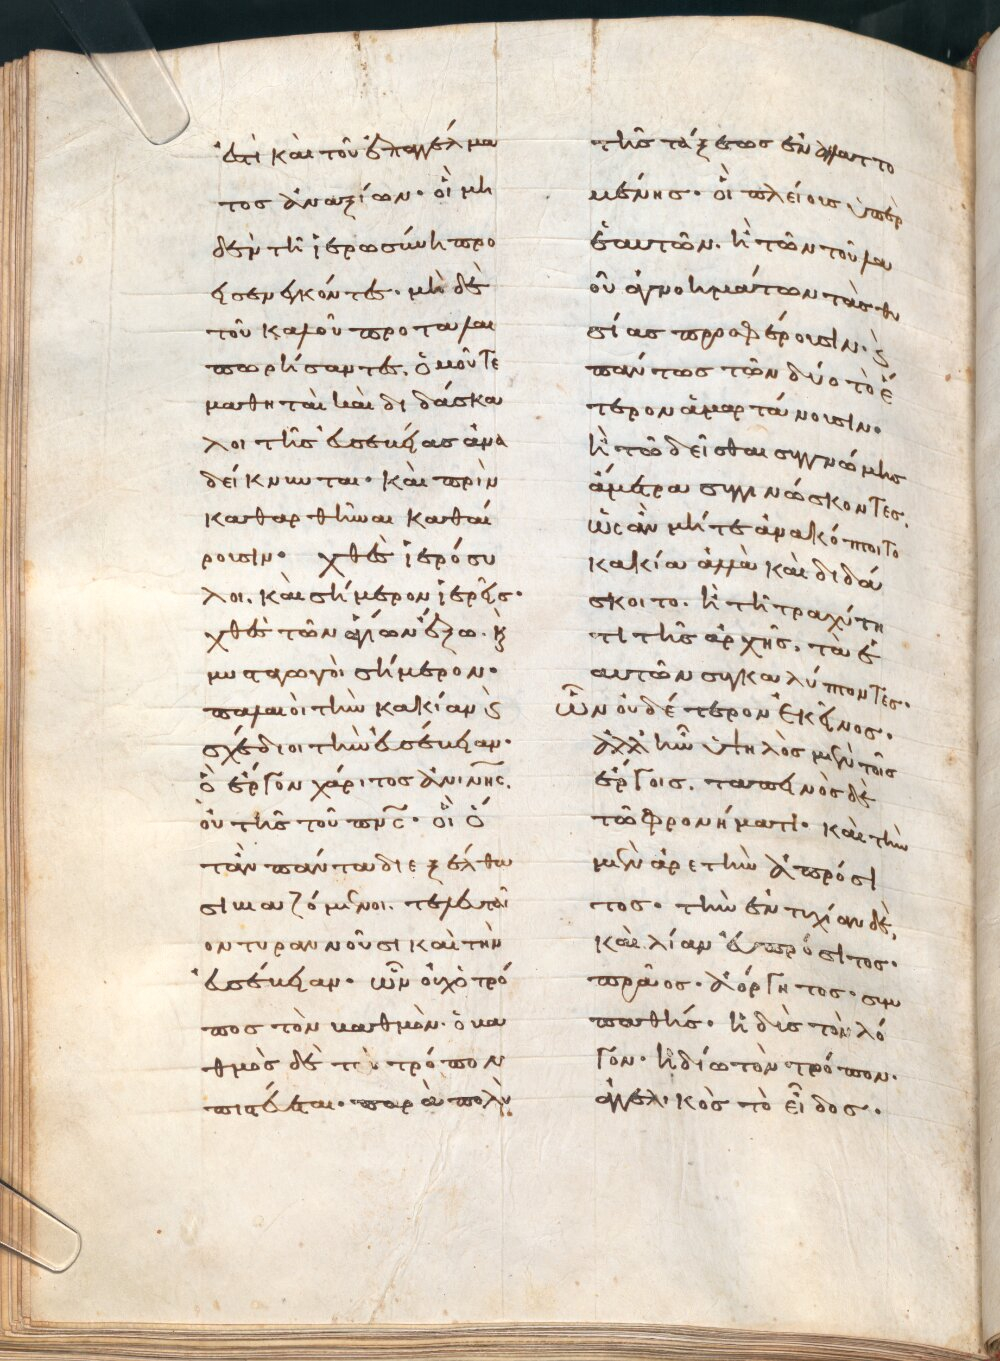 ἔτι καὶ τοῦ ἐπαγγέλμα
τος ἀναξίων· οἳ μη
δὲν τῆ ἱερωσύνη προ
εισενεγκόντες· μὴ δὲ
τοῦ καλοῦ προταλαι
πωρήσαντες, ὁμοῦ τε
μαθηταὶ καὶ διδάσκα
λοι τῆς εὐσεβείας ἀνα
δείκνυνται· καὶ πρὶν
καθαρθῆναι καθαί
ρουσιν· χθὲς ἱερόσυ
λοι, καὶ σήμερον ἱερεῖς·
χθὲς τῶν ἁγίων ἔξω· κ(αὶ)
μυσταγωγοὶ σήμερον·
παλαιοὶ τὴν κακίαν κ(αὶ)
σχέδιοι τὴν εὐσέβειαν·
ὃ ἔργον χάριτος ἀνίνης,
οὐ τῆς τοῦ πνς· οἳ ὅ
ταν πάντα διεξέλθω
σι βιαζόμενοι. τελευταῖ
ον τυραννοῦσι καὶ τὴν
εὐσέβειαν· ὧν οὐχ ὁ τρό
πος τὸν βαθμὸν· ὁ βα
θμὸς δὲ τὸν τρόπον
πιστεύεται· παρὰ πολὺ
τῆς τάξεως ἐναλλαττο
μένης· οἳ πλείους ὑπὲρ
ἑαυτῶν· ἢ τῶν τοῦ λα
οῦ ἀγνοημάτων τὰς θυ
σίας προσφέρουσιν· κ(αὶ)
πάντως τῶν δύο τὸ ἕ
τερον ἁμαρτάνουσιν·
ἢ τῶ δεῖσθαι συγγνώμης
ἄμετρα συγγινώσκοντες,
ὡς ἂν μήτε ἀνακόπτοιτο
κακία ἀλλὰ καὶ διδά
σκοιτο· ἢ τῆ τραχύτη
τι τῆς ἀρχῆς· τὰ ἑ
αυτῶν συγκαλύπτοντες·
ὧν οὐδέτερον ἐκεῖνος·
ἀλλ' ἦν ὑψηλὸς μὲν τοῖς
ἔργοις, ταπεινὸς δὲ
τῶ φρονήματι· καὶ τὴν
μὲν ἀρετὴν ἀπρόσι
τος· τὴν ἐντυχίαν δὲ,
καὶ λίαν εὐπρόσιτος·
πρᾶος· ἀόργητος· συμ
παθής· ἡδὺς τὸν λό
γον· ἡδίω τὸν τρόπον·
ἀγγελικὸς τὸ εἶδος·